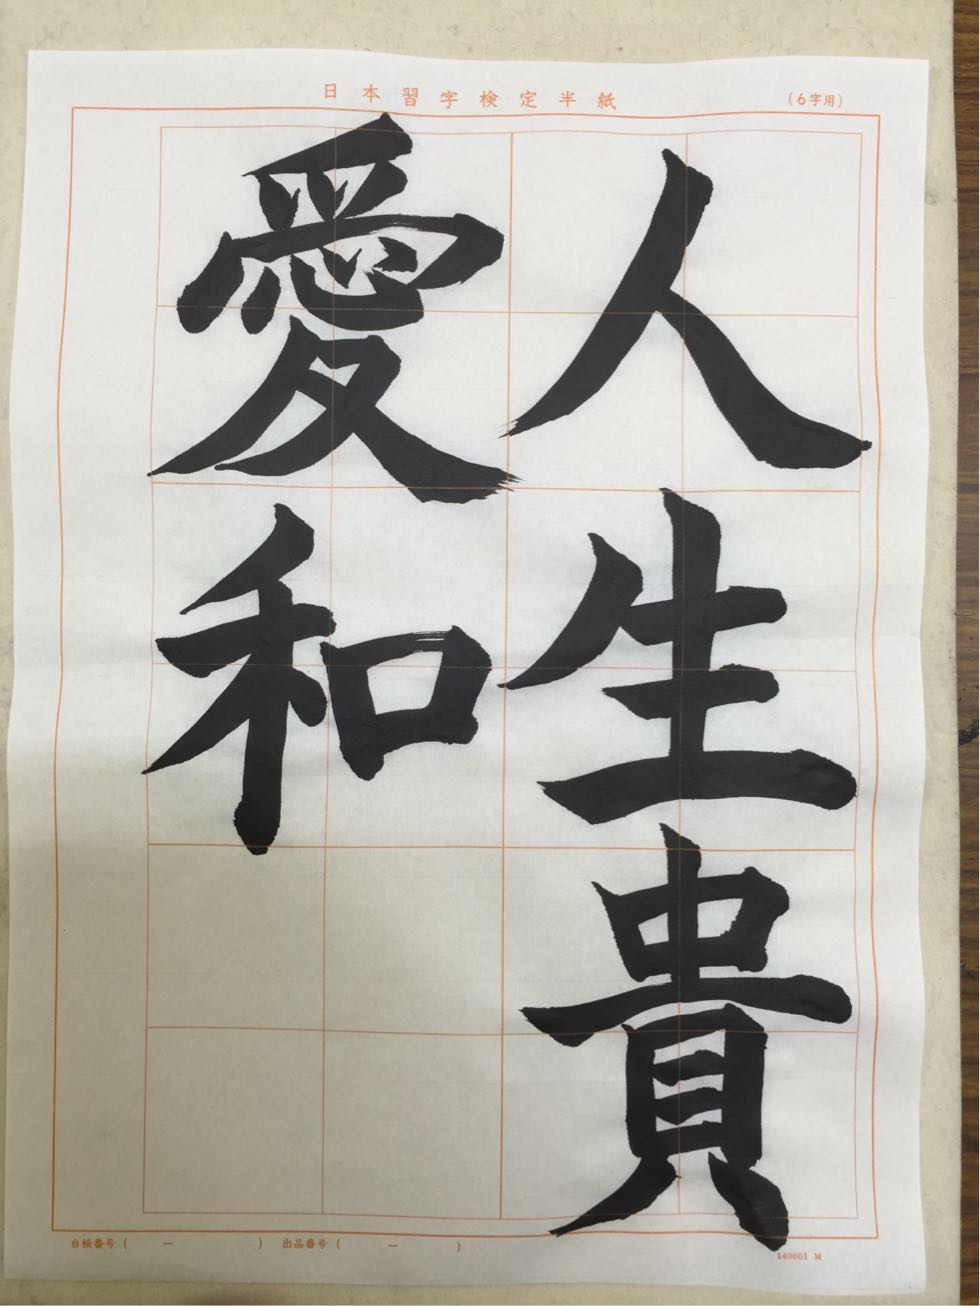 日本習字検定半紙
(6字用)
人生貴
愛和
台帳番号 ( ー ) 出品番号 ( ー )
140601 M